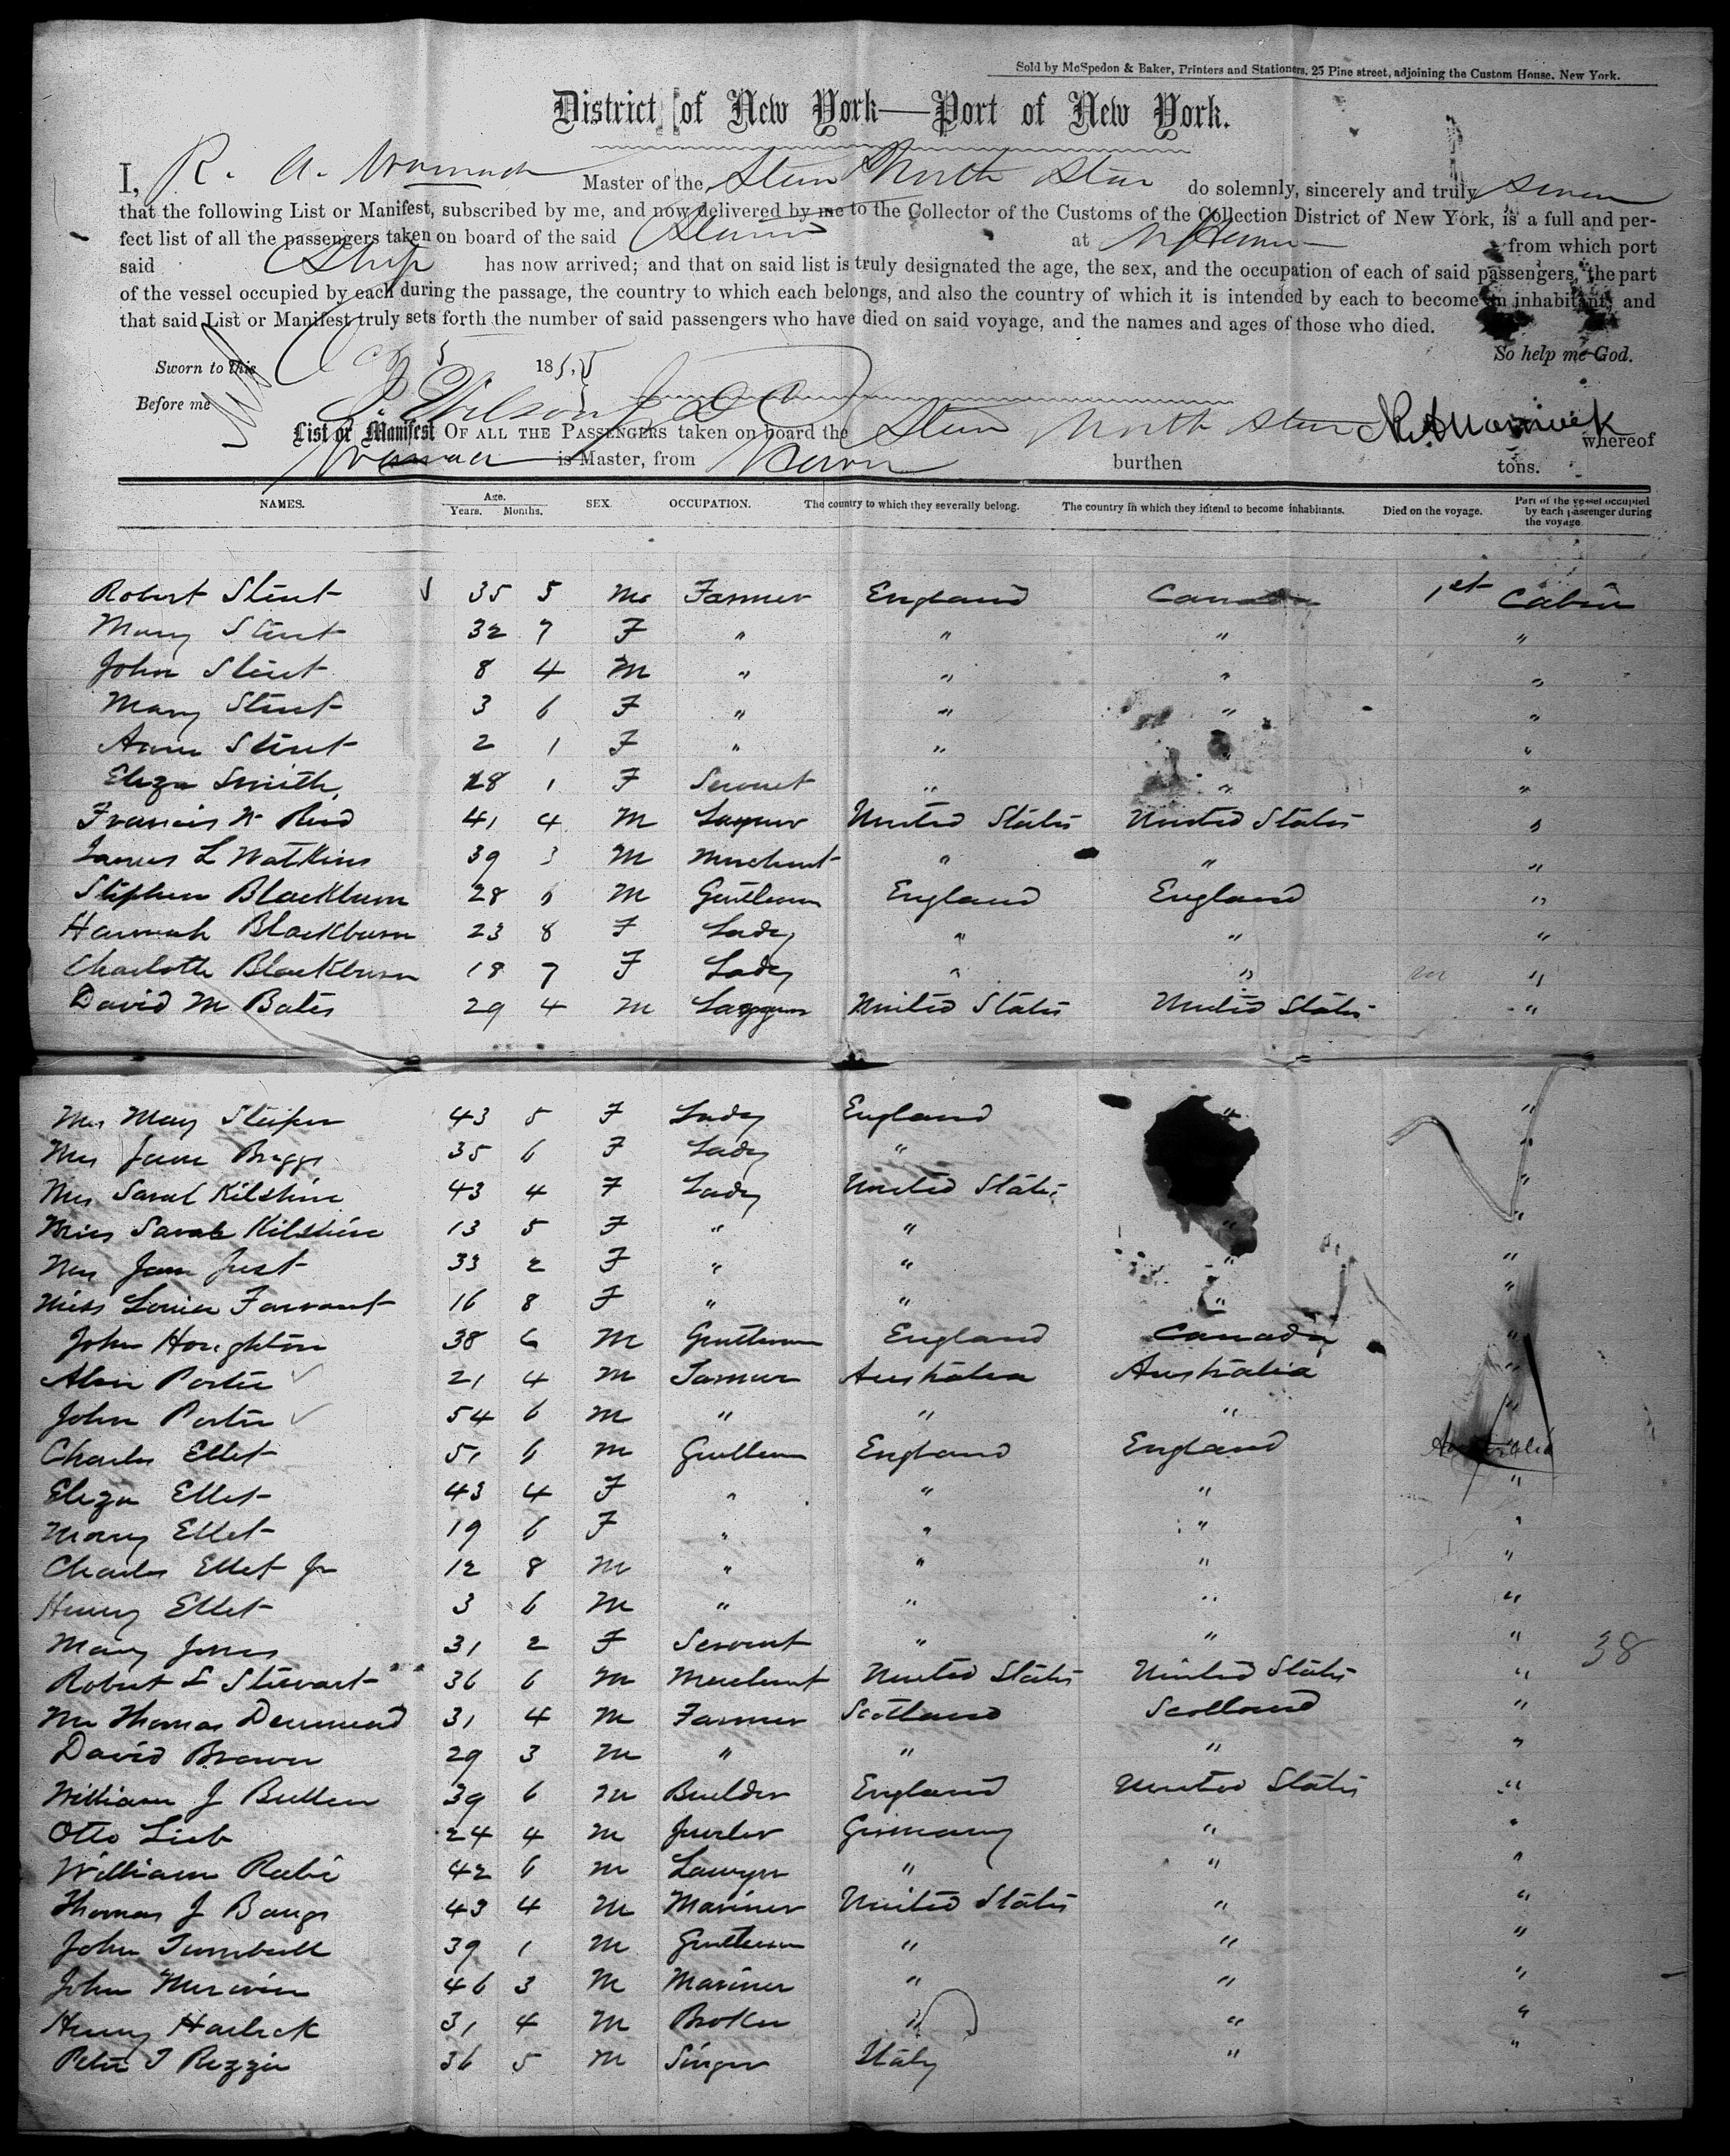 Sold by McSpedon & Baker, Printers and Stationers, 25 Pine street, adjoining the Custom House. New York.
District of New York—Port of New York.
I, R. A. Master of the North Star do solemnly, sincerely and truly
that the following List or Manifest, subscribed by me, and now delivered by me to the Collector of the Customs of the Collection District of New York, is a full and per-
fect list of all the passengers taken on board of the said at from which port
said Ship has now arrived; and that on said list is truly designated the age, the sex, and the occupation of each of said passengers, the part
of the vessel occupied by each during the passage, the country to which each belongs, and also the country of which it is intended by each to become an inhabitant; and
that said List or Manifest truly sets forth the number of said passengers who have died on said voyage, and the names and ages of those who died.
Sworn to this 5 1855 So help me God.
Before me Wilson
List or Manifest OF ALL THE PASSENGERS taken on board the North Star whereof
is Master, from burthen tons.
NAMES. Age. Years. Months. SEX. OCCUPATION. The country to which they severally belong. The country in which they intend to become inhabitants. Died on the voyage. Part of the vessel occupied by each passenger during the voyage
Robert 35 5 M Farmer England Canada 1st Cabin
Mary 32 7 F " " " "
John 8 4 M " " " "
Mary 3 6 F " " " "
2 1 F " " " "
Eliza Smith, 28 1 F Servant " " "
Francis W Reed 41 4 M United States United States "
James L Watkins 39 3 M Merchant " " "
Stephen Blackburn 28 6 M Gentleman England England "
Hannah Blackburn 23 8 F Lady " " "
Charlotte Blackburn 18 7 F Lady " " "
David M Bates 29 4 M United States United States "
Mrs Mary 43 5 F Lady England " "
Mrs Jane Briggs 35 6 F Lady " "
Mrs Sarah Kilshine 43 4 F Lady United States "
Miss Sarah Kilshine 13 5 F " " " "
Mrs Jane 33 2 F " " " "
Miss Louisa Farrant 16 8 F " " " "
John Houghton 38 6 M Gentleman England Canada "
Porter 21 4 M Farmer Australia Australia "
John Porter 54 6 M " " " "
Charles Ellet 51 6 M Gentleman England England Australia
Eliza Ellet 43 4 F " " " "
Mary Ellet 19 6 F " " " "
Charles Ellet Jr 12 8 M " " " "
Henry Ellet 3 6 M " " " "
Mary Jones 31 2 F Servant " " " 38
Robert L Stewart 36 6 M Merchant United States United States "
Mr Thomas 31 4 M Farmer Scotland Scotland "
David Brown 29 3 M " " " "
William J 39 6 M Builder England United States "
Otto Lieb 24 4 M Jeweler Germany " "
William 42 6 M Lawyer " " "
Thomas J Bangs 43 4 M Mariner United States " "
John Turnbull 39 1 M Gentleman " " "
John Merwin 46 3 M Mariner " " "
Henry 31 4 M Broker " " "
Peter 36 5 M Singer Italy " "